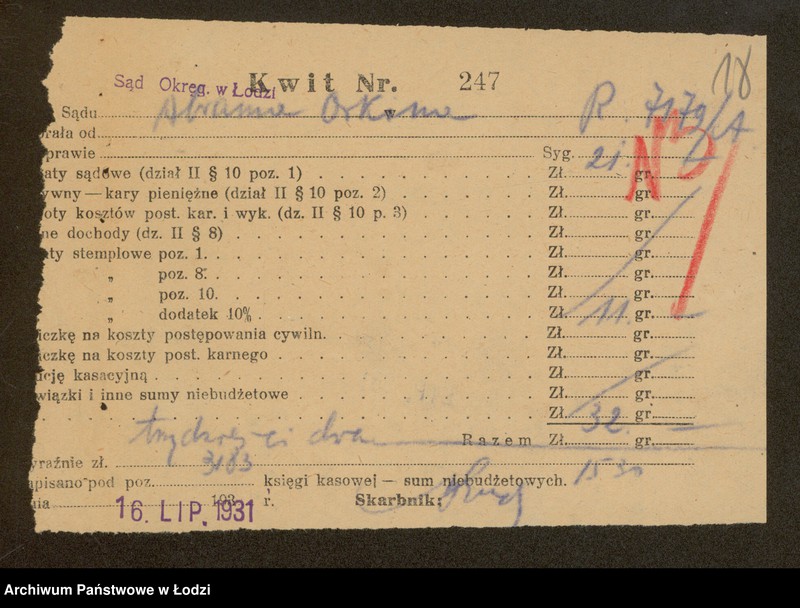 18
Sąd Okręg. w Łodzi
Kwit Nr. 247
Sądu w
Abrama Orkina R. 7179/A
rała od
prawie Syg.
aty sądowe (dział II § 10 poz. 1) Zł 21. gr.
ywny — kary pieniężne (dział II § 10 poz. 2) Zł. gr.
oty kosztów post. kar. i wyk. (dz. II § 10 p. 3) Zł. gr.
ne dochody (dz. II § 8) Zł. gr.
aty stemplowe poz. 1. Zł. gr.
„ poz. 8. Zł. gr.
„ poz. 10. Zł. gr.
„ dodatek 10% Zł. 11. gr. —
iczkę na koszty postępowania cywiln. Zł. gr.
iczkę na koszty post. karnego Zł. gr.
ucję kasacyjną Zł. gr.
wiązki i inne sumy niebudżetowe Zł. gr.
Zł. 32. gr. —
trzydzieści dwa Razem Zł. gr.
yraźnie zł.
apisano pod poz. 3183 księgi kasowej — sum niebudżetowych. 1530
nia 193 r. Skarbnik:
16. LIP. 1931
Archiwum Państwowe w Łodzi